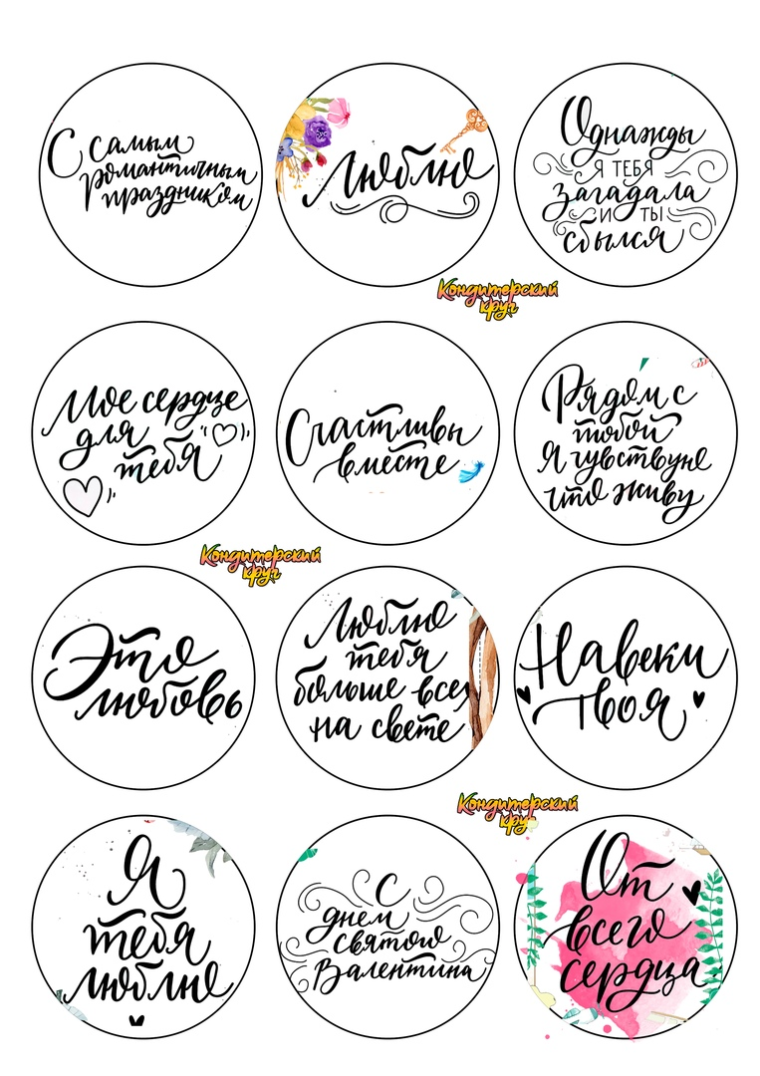 С самым
романтичным
праздником
Люблю
Однажды
Я ТЕБЯ
загадала
И ТЫ
сбылся
Кондитерский
круг
Мое сердце
для
тебя
Счастливы
вместе
Рядом с
тобой
Я чувствую
что живу
Кондитерский
круг
Это
любовь
Люблю
тебя
больше всех
на свете
Навеки
твоя
Кондитерский
круг
Я
тебя
люблю
С
днем
святого
Валентина
От
всего
сердца